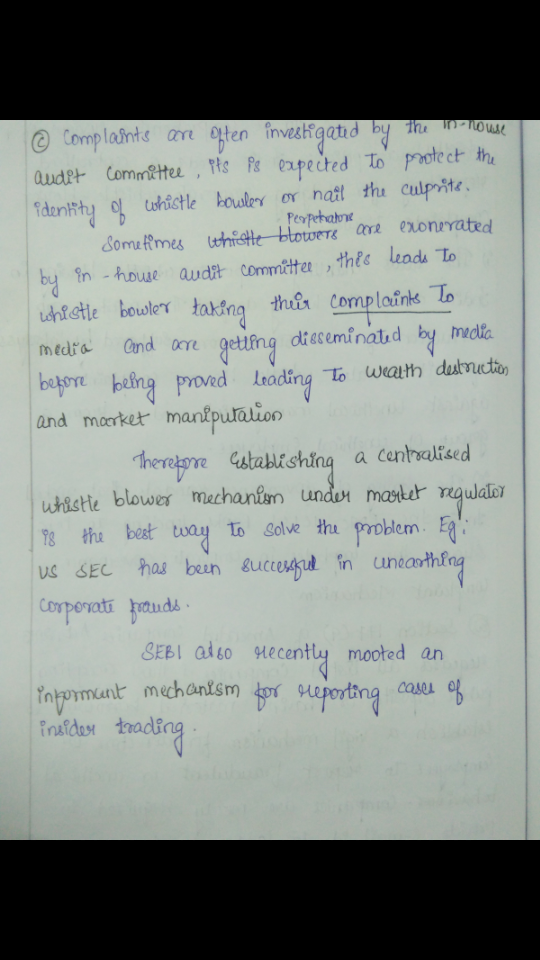 ② Complaints are often investigated by the in-house
audit committee, its is expected to protect the
identity of whistle bowler or nail the culprits.
Perpetrators
Sometimes whistle blowers are exonerated
by in-house audit committee, this leads to
whistle bowler taking their complaints to
media and are getting disseminated by media
before being proved leading to wealth destruction
and market manipulation
Therefore Establishing a centralised
whistle blower mechanism under market regulator
is the best way to solve the problem. Eg:
US SEC has been successful in unearthing
corporate frauds.
SEBI also recently mooted an
informant mechanism for reporting cases of
insider trading.